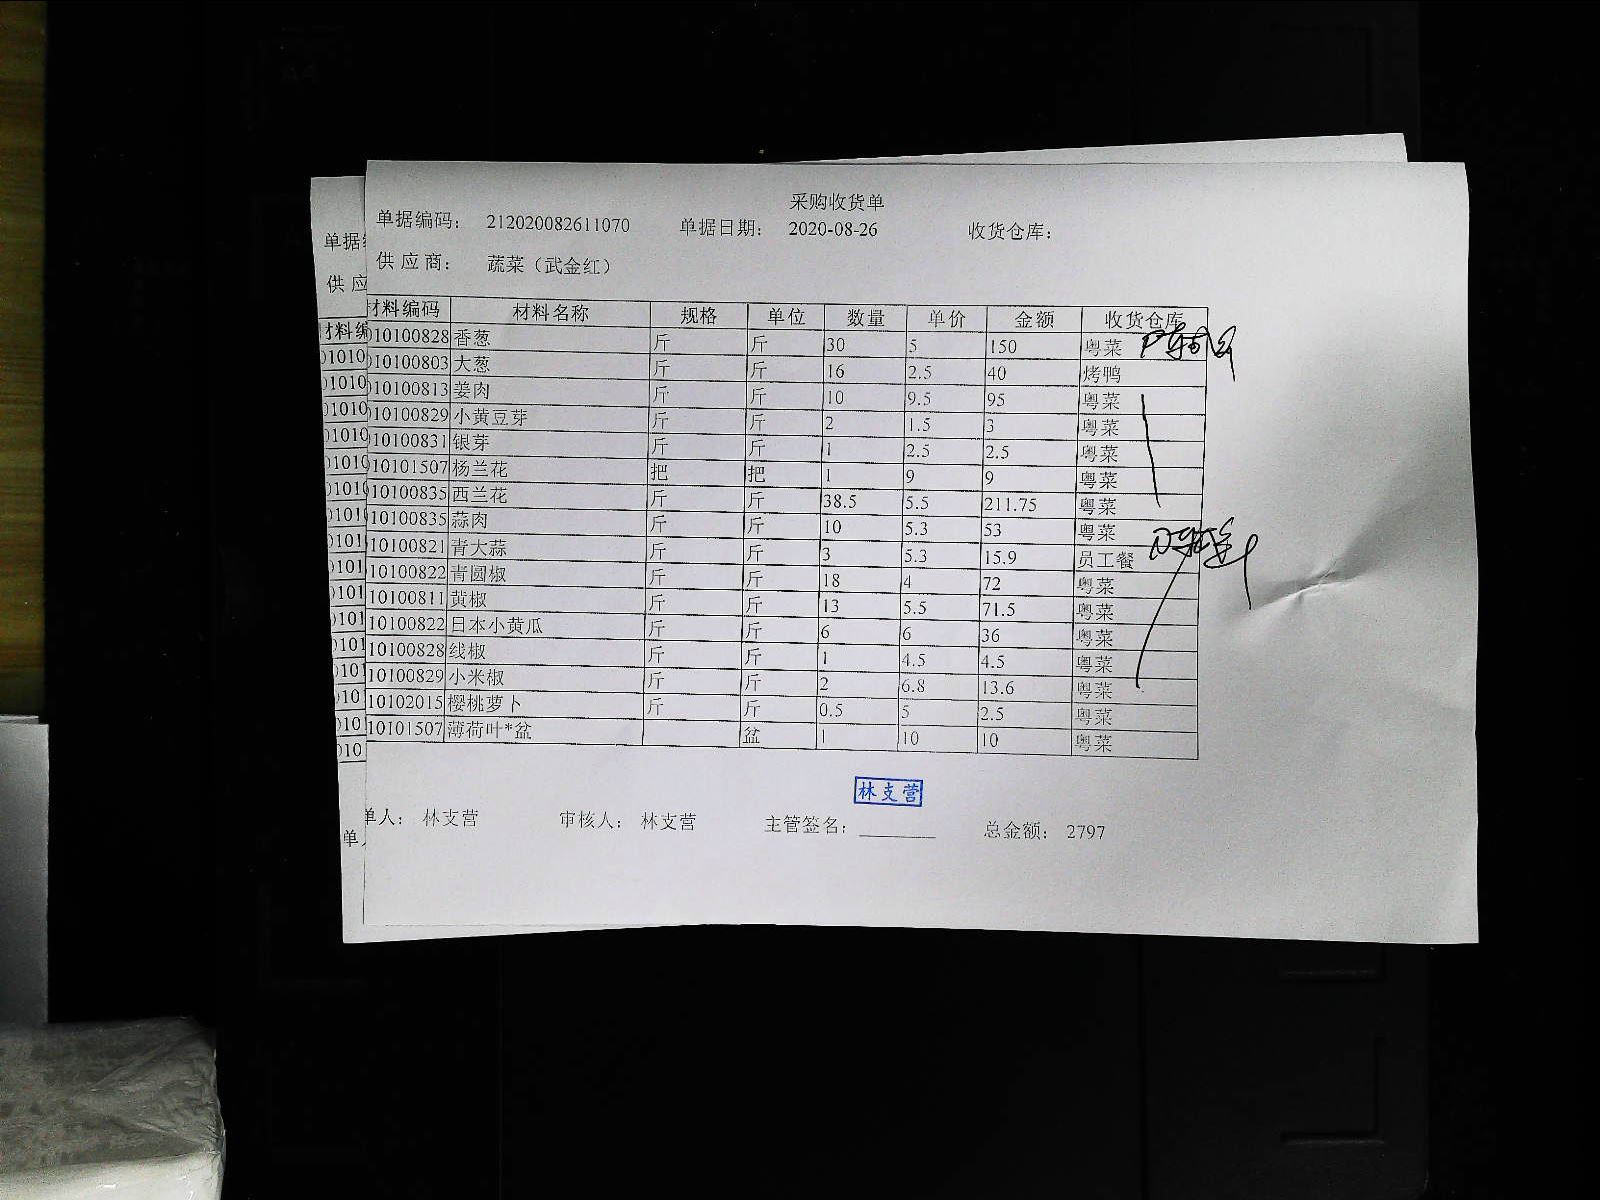 采购收货单
单据编码： 212020082611070 单据日期： 2020-08-26 收货仓库：
供应商： 蔬菜（武金红）
材料编码 材料名称 规格 单位 数量 单价 金额 收货仓库
10100828 香葱 斤 斤 30 5 150 粤菜
10100803 大葱 斤 斤 16 2.5 40 烤鸭
10100813 姜肉 斤 斤 10 9.5 95 粤菜
10100829 小黄豆芽 斤 斤 2 1.5 3 粤菜
10100831 银芽 斤 斤 1 2.5 2.5 粤菜
10101507 杨兰花 把 把 1 9 9 粤菜
10100835 西兰花 斤 斤 38.5 5.5 211.75 粤菜
10100835 蒜肉 斤 斤 10 5.3 53 粤菜
10100821 青大蒜 斤 斤 3 5.3 15.9 员工餐
10100822 青圆椒 斤 斤 18 4 72 粤菜
10100811 黄椒 斤 斤 13 5.5 71.5 粤菜
10100822 日本小黄瓜 斤 斤 6 6 36 粤菜
10100828 线椒 斤 斤 1 4.5 4.5 粤菜
10100829 小米椒 斤 斤 2 6.8 13.6 粤菜
10102015 樱桃萝卜 斤 斤 0.5 5 2.5 粤菜
10101507 薄荷叶*盆 盆 1 10 10 粤菜
林支营
单人： 林支营 审核人： 林支营 主管签名： 总金额： 2797